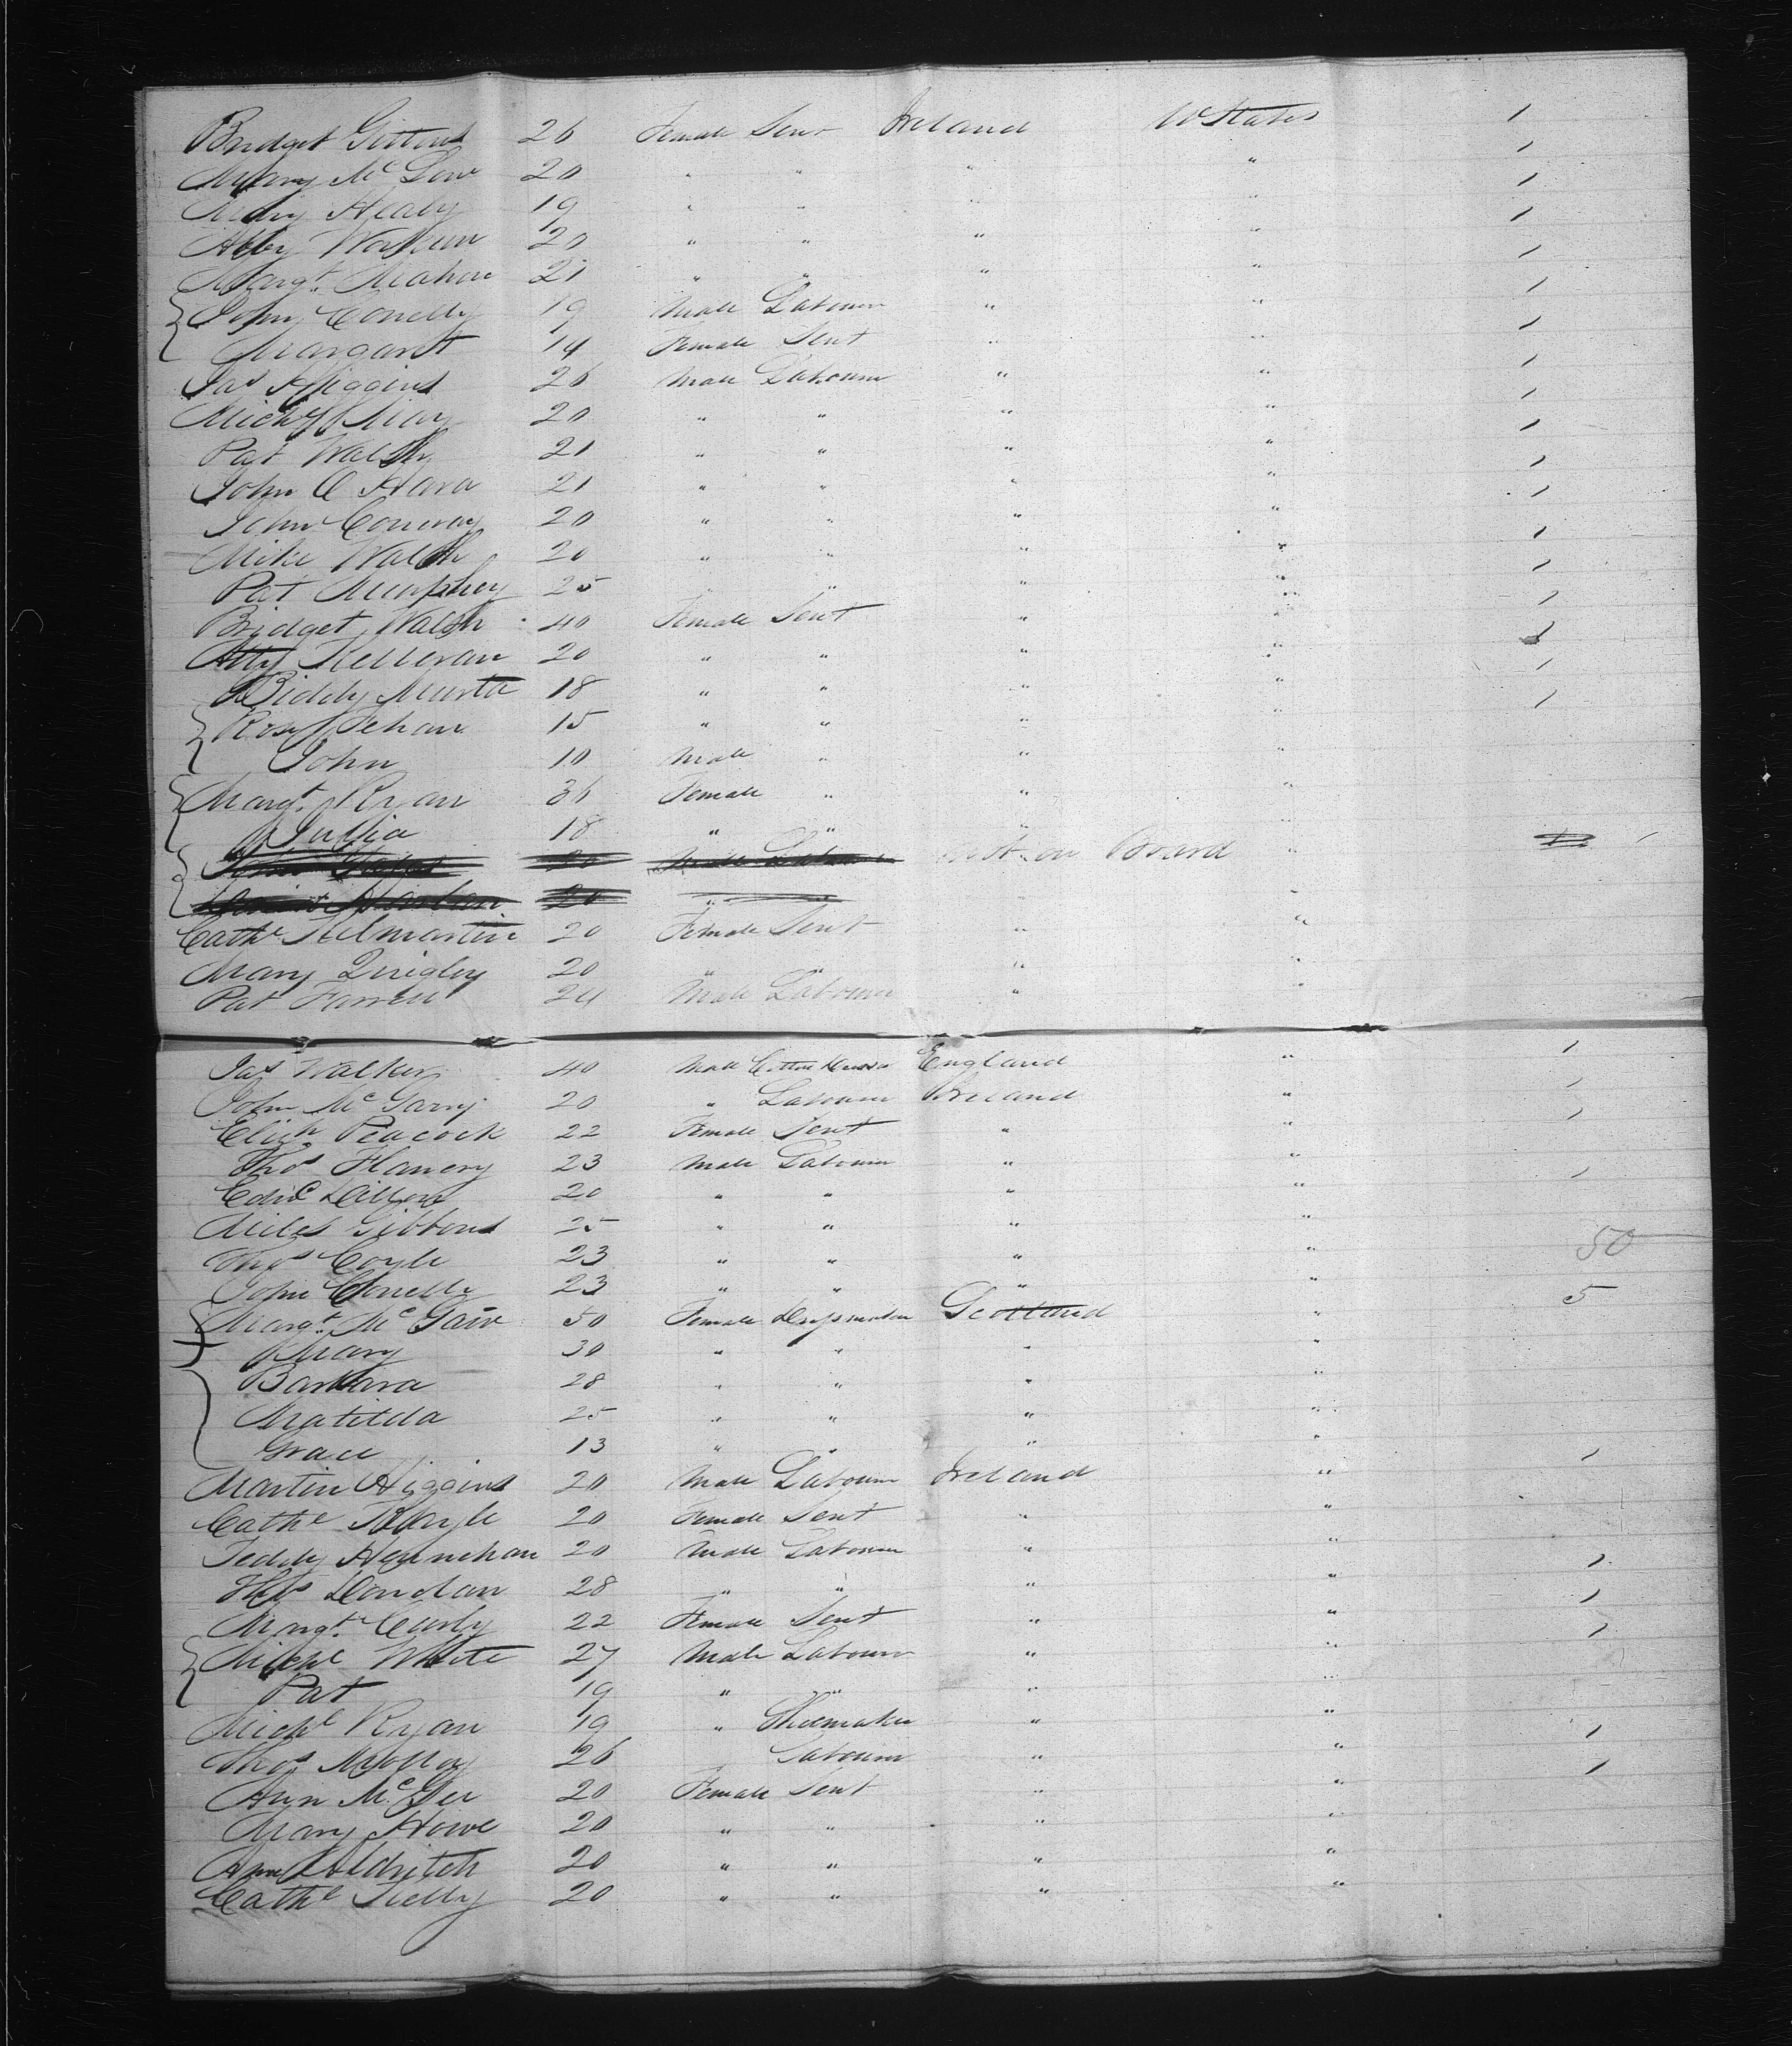 Bridget Gittens 26 Female Servt Ireland U States 1
Mary McGow 20 " " " " 1
Mary Healy 19 " " " " 1
Abby Watson 20 " " " " 1
Margt. Mahon 21 " " " " 1
John Conelly 19 Male Labourer " " 1
Margaret 14 Female Servt " " 1
Jas Higgins 26 Male Labourer " " 1
Michl May 20 " " " " 1
Pat Walsh 21 " " " " 1
John O Hara 21 " " " " 1
John Conway 20 " " " " 1
Mike Walsh 20 " " " " 1
Pat Murphey 25 " " " " 1
Bridget Walsh 40 Female Servt " " 1
Kelleran 20 " " " " 1
Biddy Murta 18 " " " " 1
Rosy Tehan 15 " " " " 1
John 10 Male " " "
Margt. Ryan 36 Female " " "
Julia 18 " " " "
John 20 Male Labourer Not on Board " 1
20 " " " "
Cathe Kilmartin 20 Female Servt " "
Mary Quigley 20 " " " "
Pat Farrell 24 Male Labourer " "
Jas Walker 40 Male Cotton England " 1
John McGarry 20 " Labourer Ireland " 1
Elizh Peacock 22 Female Servt " " 1
Thos Flanery 23 Male Labourer " "
Edwd Dillon 20 " " " " 1
Miles Gibbons 25 " " " "
Thos Coyle 23 " " " " 50
John Conelly 23 " " " "
Margt. McGaw 50 Female Dressmaker Scotland " 5
Mary 30 " " " "
Barbara 28 " " " "
Matilda 25 " " " "
Grace 13 " " " "
Martin Higgins 20 Male Labourer Ireland " 1
Cathe 20 Female Servt " "
Teddy Hennehan 20 Male Labourer " "
Hy Condan 28 " " " " 1
Margt. Curly 22 Female Servt " " 1
Michl White 27 Male Labourer " " 1
Pat 19 " " " "
Michl Ryan 19 " Shoemaker " "
Thos Molloy 26 Labourer " " 1
Ann McGee 20 Female Servt " " 1
Mary Howe 20 " " " "
Ann Aldritch 20 " " " "
Cathe Kelly 20 " " " "